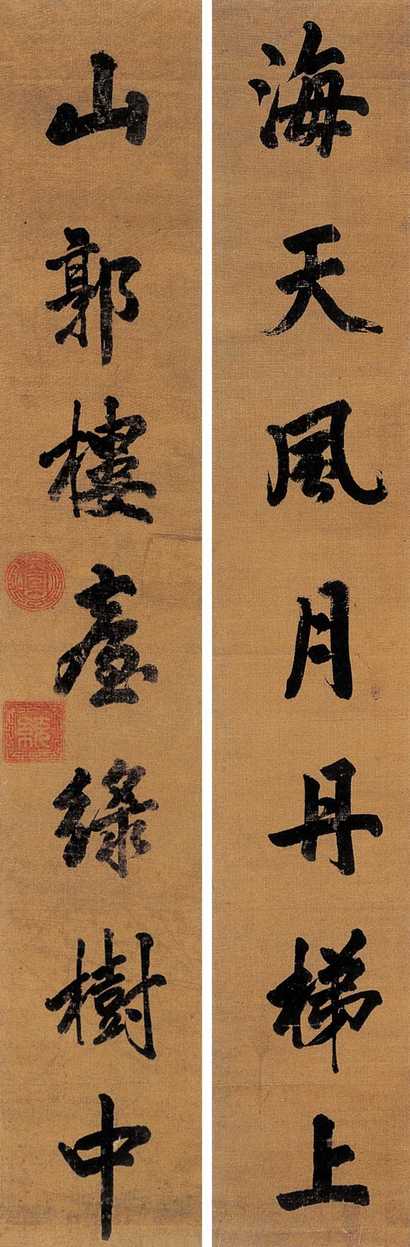 海天風月丹梯上
山郭樓臺綠樹中